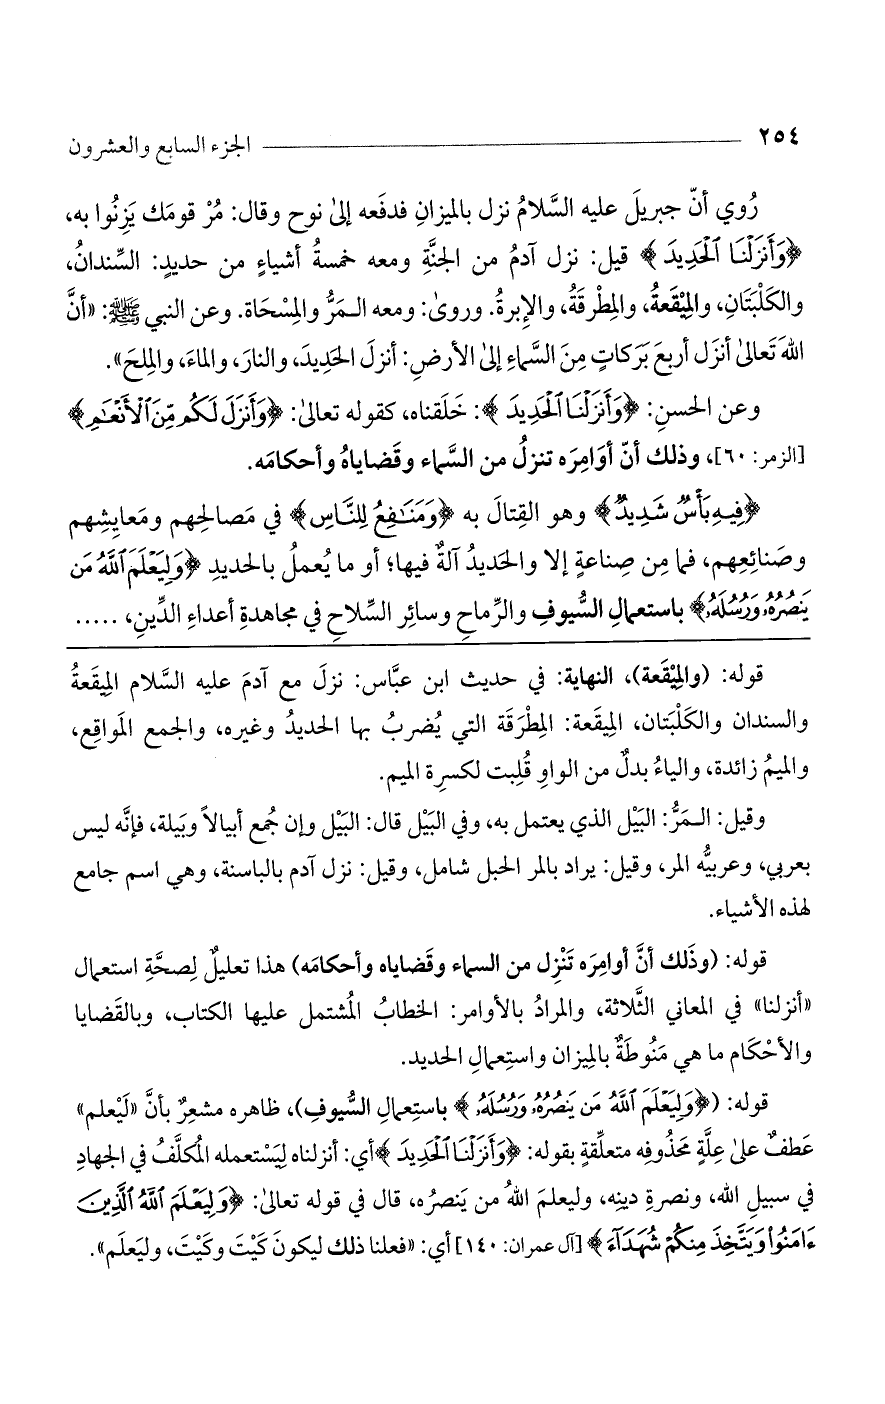 ٢٥٤ الجزء السابع والعشرون
رُوي أنّ جبريلَ عليه السَّلامُ نزل بالميزانِ فدفَعه إلىٰ نوح وقال: مُرْ قومَك يَزِنُوا به،
﴿وَأَنزَلْنَا ٱلْحَدِيدَ﴾ قيل: نزل آدمُ من الجنَّةِ ومعه خمسةُ أشياءٍ من حديدٍ: السِّندانُ،
والكَلْبَتَانِ، والمِيْقَعةُ، والمِطْرقَةُ، والإبرةُ. وروىٰ: ومعه الـمَرُّ والمِسْحَاة. وعن النبي ﷺ: «أنَّ
اللهَ تَعالىٰ أنزَل أربعَ بَركاتٍ مِنَ السَّماءِ إلىٰ الأرضِ: أنزلَ الحَدِيدَ، والنارَ، والماءَ، والمِلحَ».
وعن الحسنِ: ﴿وَأَنزَلْنَا ٱلْحَدِيدَ﴾: خَلَقناه، كقوله تعالىٰ: ﴿وَأَنزَلَ لَكُم مِّنَ ٱلْأَنْعَٰمِ﴾
[الزمر: ٦٠]، وذلك أنّ أوَامِرَه تنزلُ من السَّماء وقَضاياهُ وأحكامَه.
﴿فِيهِ بَأْسٌ شَدِيدٌ﴾ وهو القِتالَ به ﴿وَمَنَٰفِعُ لِلنَّاسِ﴾ في مَصالحِهم ومَعايِشِهم
وصَنائِعِهم، فما مِن صِناعةٍ إلا والحَديدُ آلةٌ فيها؛ أو ما يُعملُ بالحديدِ ﴿وَلِيَعْلَمَ ٱللَّهُ مَن
يَنصُرُهُۥ وَرُسُلَهُۥ﴾ باستعمالِ السُّيوفِ والرِّماحِ وسائرِ السِّلاحِ في مجاهدةِ أعداءِ الدِّينِ، .....
قوله: (والمِيْقَعة)، النهاية: في حديث ابن عبَّاس: نزلَ مع آدمَ عليه السَّلام المِيقَعةُ
والسندان والكَلْبَتان، المِيقَعة: المِطْرَقَة التي يُضربُ بها الحديدُ وغيره، والجمع المَواقِع،
والميمُ زائدة، والياءُ بدلٌ من الواوِ قُلِبت لكسرةِ الميم.
وقيل: الـمَرُّ: البَيْل الذي يعتمل به، وفي البَيْل قال: البَيْل وإن جُمع أبيالاً وبَيلة، فإنَّه ليس
بعربي، وعربيُّه المر، وقيل: يراد بالمر الحبل شامل، وقيل: نزل آدم بالباسنة، وهي اسم جامع
لهذه الأشياء.
قوله: (وذَلك أنَّ أوامِرَه تَنْزِل من السماء وقَضاياه وأحكامَه) هذا تعليلٌ لِصحَّةِ استعمال
«أنزلنا» في المعاني الثَّلاثة، والمرادُ بالأوامر: الخطابُ المُشتمل عليها الكتاب، وبالقَضايا
والأحْكَام ما هي مَنُوطَةٌ بالمِيزان واستِعمالِ الحديد.
قوله: (﴿وَلِيَعْلَمَ ٱللَّهُ مَن يَنصُرُهُۥ وَرُسُلَهُۥ﴾ باستِعمالِ السُّيوفِ)، ظاهره مشعرٌ بأنَّ «لَيْعلم»
عَطفٌ علىٰ عِلَّةٍ محَذُوفِه متعلِّقةٍ بقوله: ﴿وَأَنزَلْنَا ٱلْحَدِيدَ﴾ أي: أنزلناه لِيَسْتعمله المُكلَّفُ في الجهادِ
في سبيلِ الله، ونصرةِ دينِه، وليعلمَ اللهُ من يَنصرُه، قال في قوله تعالىٰ: ﴿وَلِيَعْلَمَ ٱللَّهُ ٱلَّذِينَ
ءَامَنُوا۟ وَيَتَّخِذَ مِنكُمْ شُهَدَآءَ﴾ [آل عمران: ١٤٠] أي: «فعلنا ذلك ليكونَ كَيْتَ وكَيْتَ، وليَعلَم».